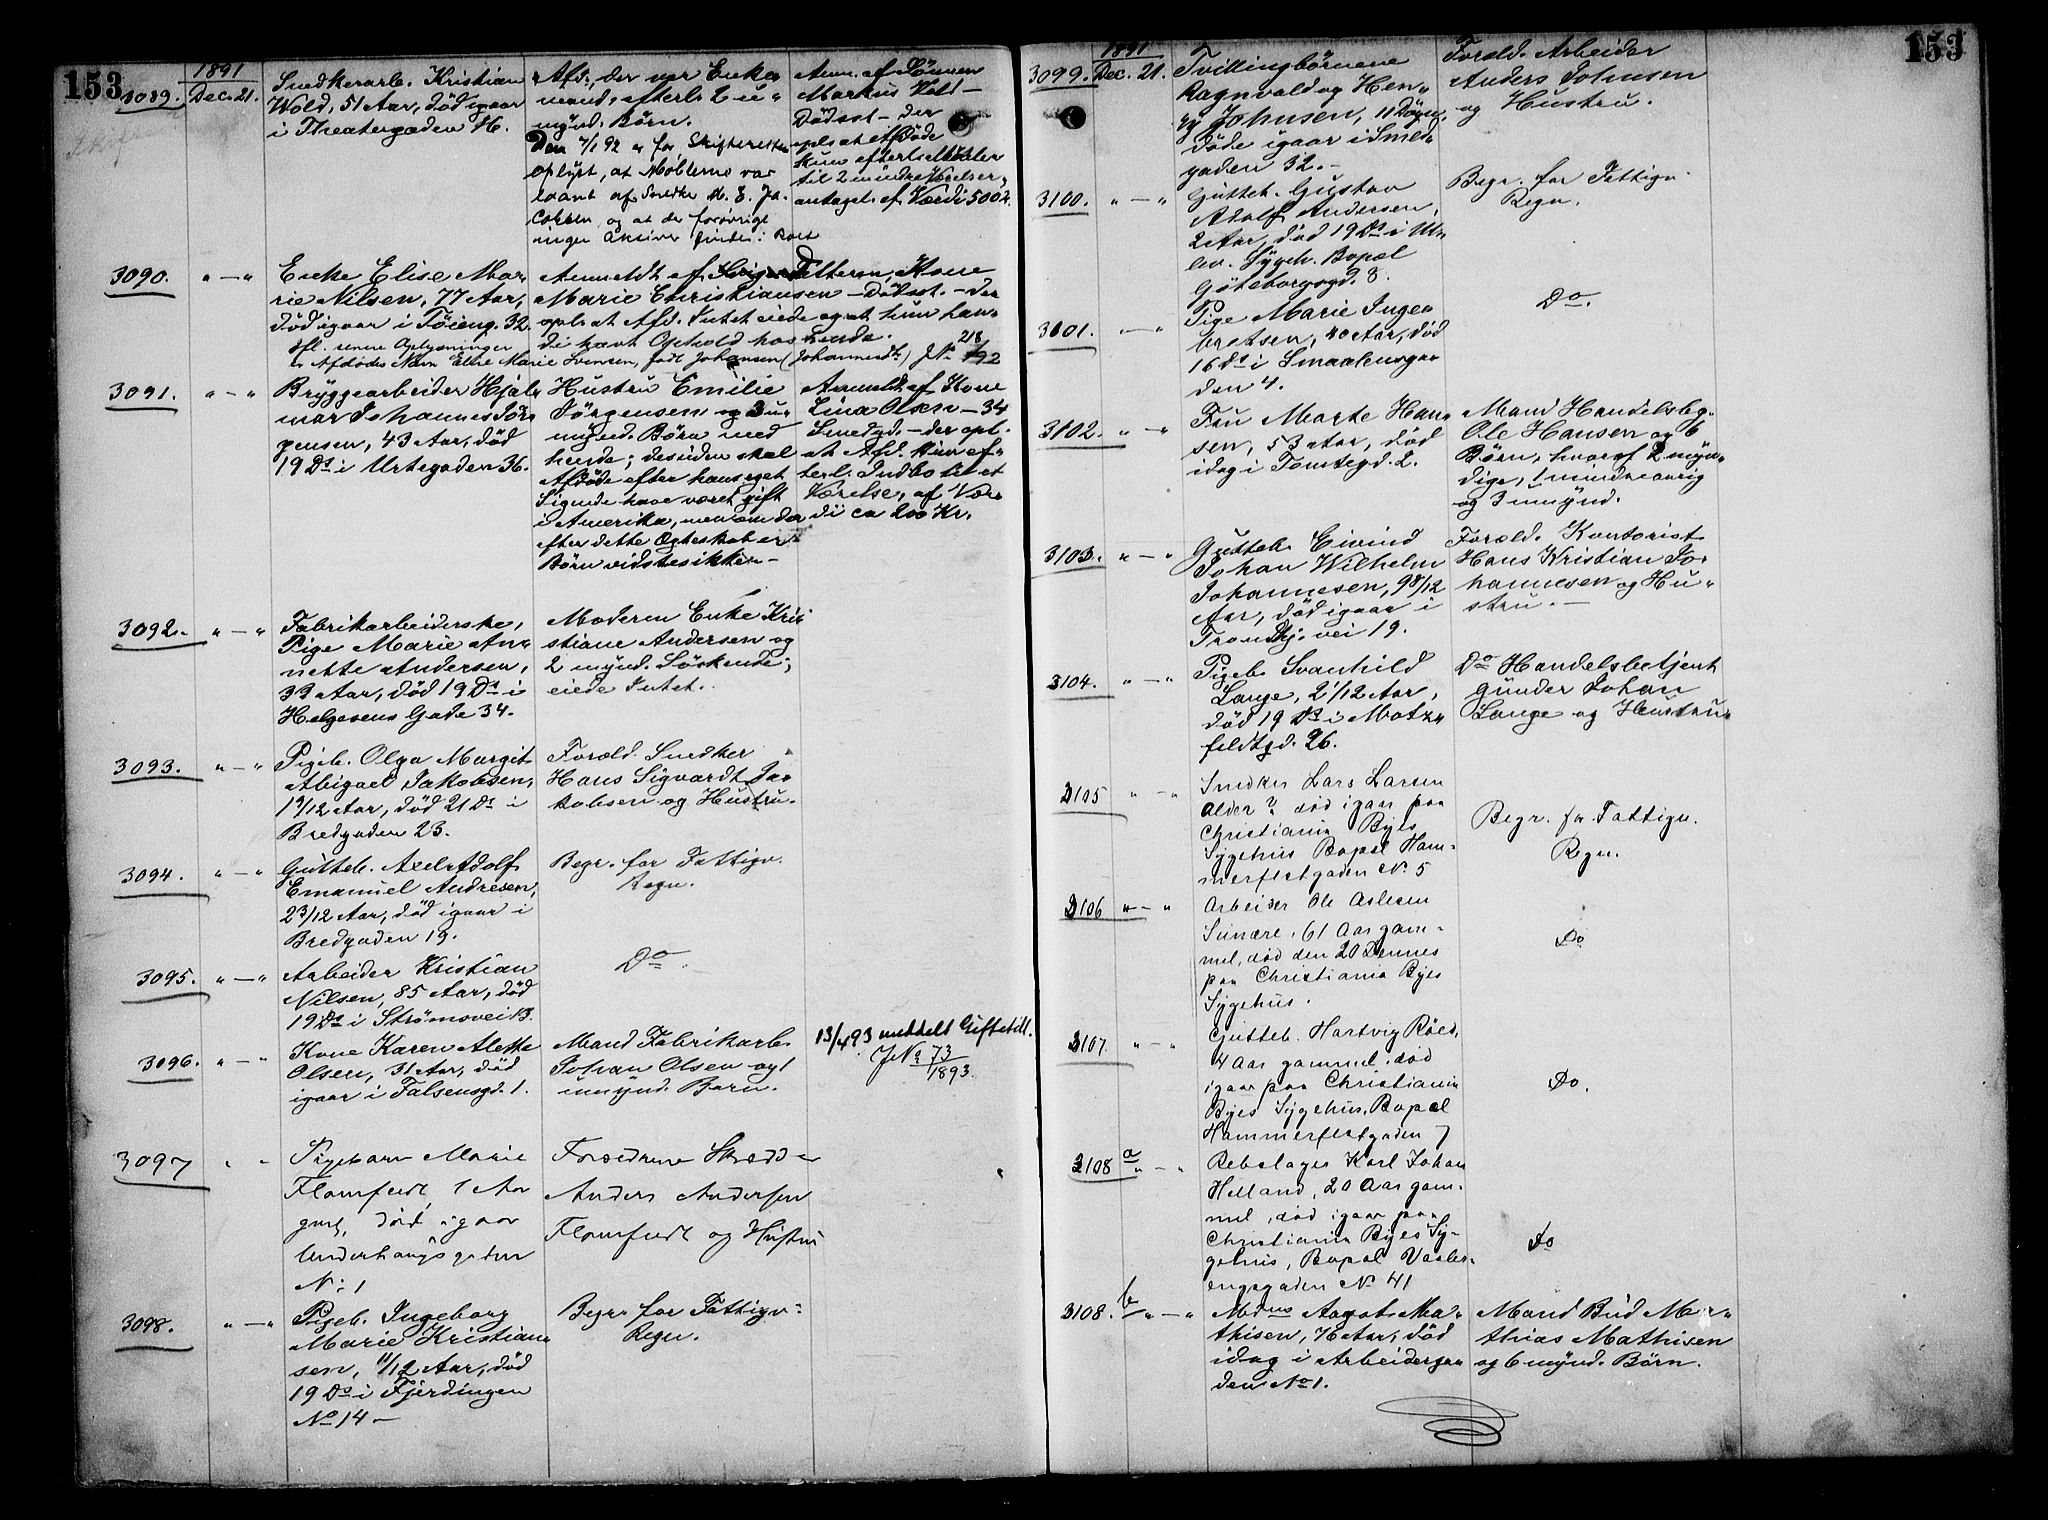 153
1891
3089. Dec. 21.
Snedkerarb. Kristian
Wold, 51 Aar, död igaar
i Theatergaden 16.
Afd., der var Enke„
mand, efterl. 2 u„
mynd. Börn.
Den 7/1 92 er for Skifteretten
oplyst, at Möblerne var
laant af Snedker M. E. Ja„
cobsen og at der forövrigt
ingen Aktiver findes i Boet
Anm. af Sönnen
Markus Wold –
Dödsst – der
opl. at Afdöde
kun efterl. Möbler
til 2 mindre Værelser,
antagel. af Værdi 500 Kr.
3090. „ — „
Enke Elise Ma„
rie Nilsen, 77 Aar,
död igaar i Töieng. 32.
Anmeldt af Svigerdatteren, Kone
Marie Christiansen – Dödsst. – der
opl. at Afd. Intet eiede og at hun hav„
de havt Ophold hos hende.
Ifl. senere Oplysninger
er Afdödes Navn Elise Marie Svensen, födt Johansen (Johannesdtr.) J№ 218/92
3091. „ — „
Bryggearbeider Hjal„
mar Johannes Jör„
gensen, 43 Aar, död
19 Ds i Urtegaden 36.
Hustru Emilie
Jörgensen og 3 u„
mynd. Börn med
hende; desuden skal
Afdöde efter hans eget
Sigende have været gift
i Amerika, men om der
efter dette Ægteskab er
Börn vides ikke. –
Anmeldt af Kone
Lina Olsen – 34
Smedgd. – der opl.
at Afd. kun ef„
terl. Indbo til et
Værelse, af Vær„
di ca 200 Kr.
3092. „ — „
Fabrikarbeiderske,
Pige Marie An„
nette Andersen,
33 Aar, död 19 Ds i
Helgesens Gade 34.
Moderen Enke Kri„
stiane Andersen og
2 mynd. Söskende;
eiede Intet.
3093. „ — „
Pigeb. Olga Margit
Abigael Jakobsen,
1 9/12 Aar, död 21 Ds i
Bredgaden 23.
Foræld. Snedker
Hans Sigvardt Ja„
kobsen og Hustru.
3094. „ — „
Gutteb. Axel Adolf
Emanuel Andresen,
2 3/12 Aar, död igaar i
Bredgaden 19.
Begr. for Fattigv.
Regn.
3095. „ — „
Arbeider Kristian
Nilsen, 85 Aar, död
19 Ds i Strömsvei 13.
Do.
3096. „ — „
Kone Karen Alette
Olsen, 31 Aar, död
igaar i Falsensgd. 1.
Mand Fabrikarb.
Johan Olsen og 1
umynd. Barn.
13/4 93 meddelt Giftetill.
J№ 73/1893.
3097 „ „
Pigebarn Marie
1 Aar
gml, död igaar
Underhaugsgaden
N: 1
Forældrene
Anders Andersen
og Hustru
3098. „ — „
Pigeb. Ingeborg
Marie Kristian„
sen, 11/12 Aar, död
19 Ds i Fjerdingen
No 14 –
Begr. for Fattigv.
Regn.
153
1891
3099. Dec. 21.
Tvillingbörnene
Ragnvald og Hen„
ry Johnsen, 11 Dögn,
döde igaar i Smed„
gaden 32. –
Foræld. Arbeider
Anders Johnsen
og Hustru.
3100. „ — „
Gutteb. Gustav
Adolf Andersen,
2 Aar, död 19 Ds i Ul„
lev. Sygeh. Bopæl
Göteborggd. 8.
Begr. for Fattigv.
Regn.
3101. „ — „
Pige Marie Inge„
bretsen, 40 Aar, död
16 Ds i Smaalensga„
den 4.
Do.
3102. „ — „
Fru Marte Han„
sen, 53 Aar, död
idag i Tomtegd. 2.
Mand Handelsbg.
Ole Hansen og 6
Börn, hvoraf 2 myn„
dige, 1 mindreaarig
og 3 umynd.
3103. „ — „
Gutteb. Eivind
Johan Wilhelm
Johannesen, 9 8/12
Aar, död igaar i
Trondhj. vei 19.
Foræld. Kontorist
Hans Kristian Jo„
hannesen og Hu„
stru. –
3104. „ — „
Pigeb. Svanhild
Lange, 2 1/12 Aar,
död 19 Ds i Motz„
feldtgd. 26.
Do Handelsbetjent
Günder Johan
Lange og Hustru.
3105 „ — „
Snedker Lars Larsen
Alder? död igaar paa
Christiania Byes
Sygehus Bopæl Ham„
merfestgaden No. 5
Begr. for Fattigv.
Regn.
3106 „ — „
Arbeider Ole Aslesen
61 Aar gam„
mel, död den 20 Dennes
paa Christiania Byes
Sygehus.
Do
3107 „ — „
Gutteb. Hartvig Röed,
4 Aar gammel, död
igaar paa Christiania
Byes Sygehus, Bopæl
Hammerfestgaden 7
Do.
3108 a „ — „
Rebslager Karl Johan
Helland, 20 Aar gam„
mel, död igaar paa
Christiania Byes Sy„
gehus, Bopæl Vaaler„
engsgaden No 41
Do
3108. b „ — „
Mdme Aagot Ma„
thisen, 76 Aar, död
idag i Arbeiderga„
den No 1.
Mand Bud Ma„
thias Mathisen
og 6 mynd. Börn.